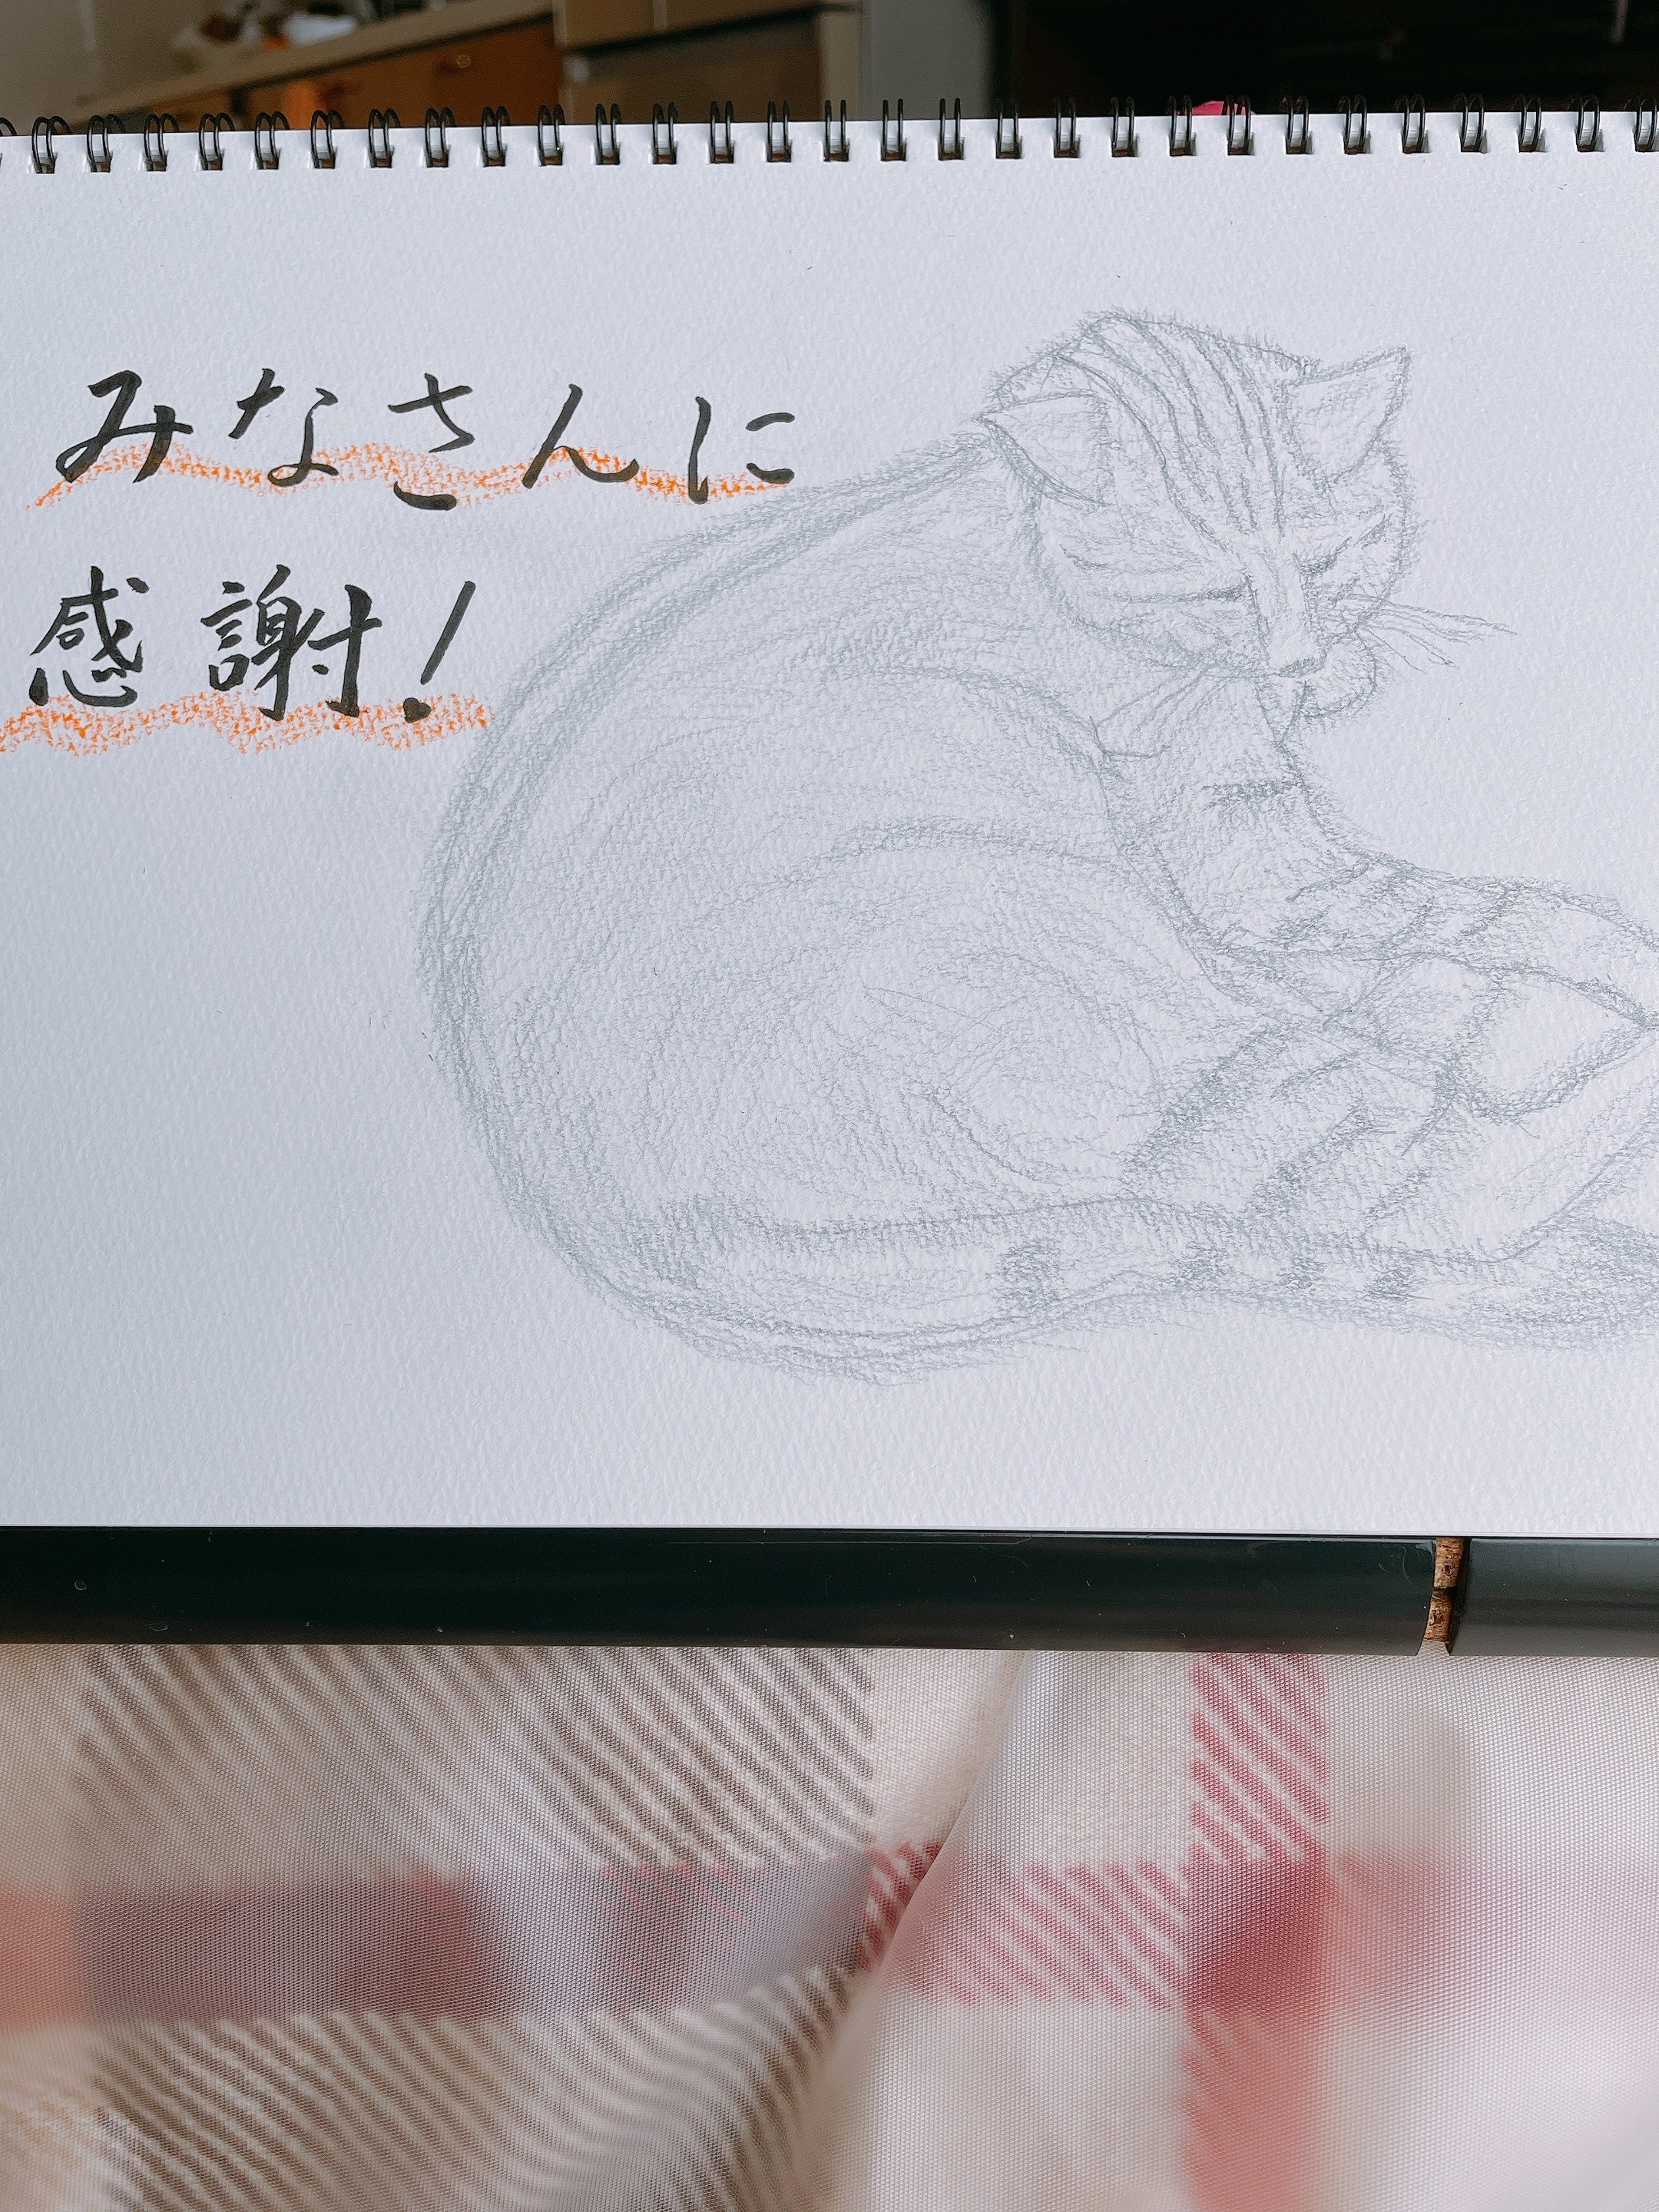 みなさんに
感謝!